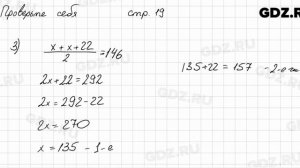 Проверьте себя стр. 19 GDZ.RU
3) x + x + 22 / 2 = 146
2x + 22 = 292
135 + 22 = 157 - 2-ое
2x = 292 - 22
2x = 270
x = 135 - 1-е
GDZ.RU